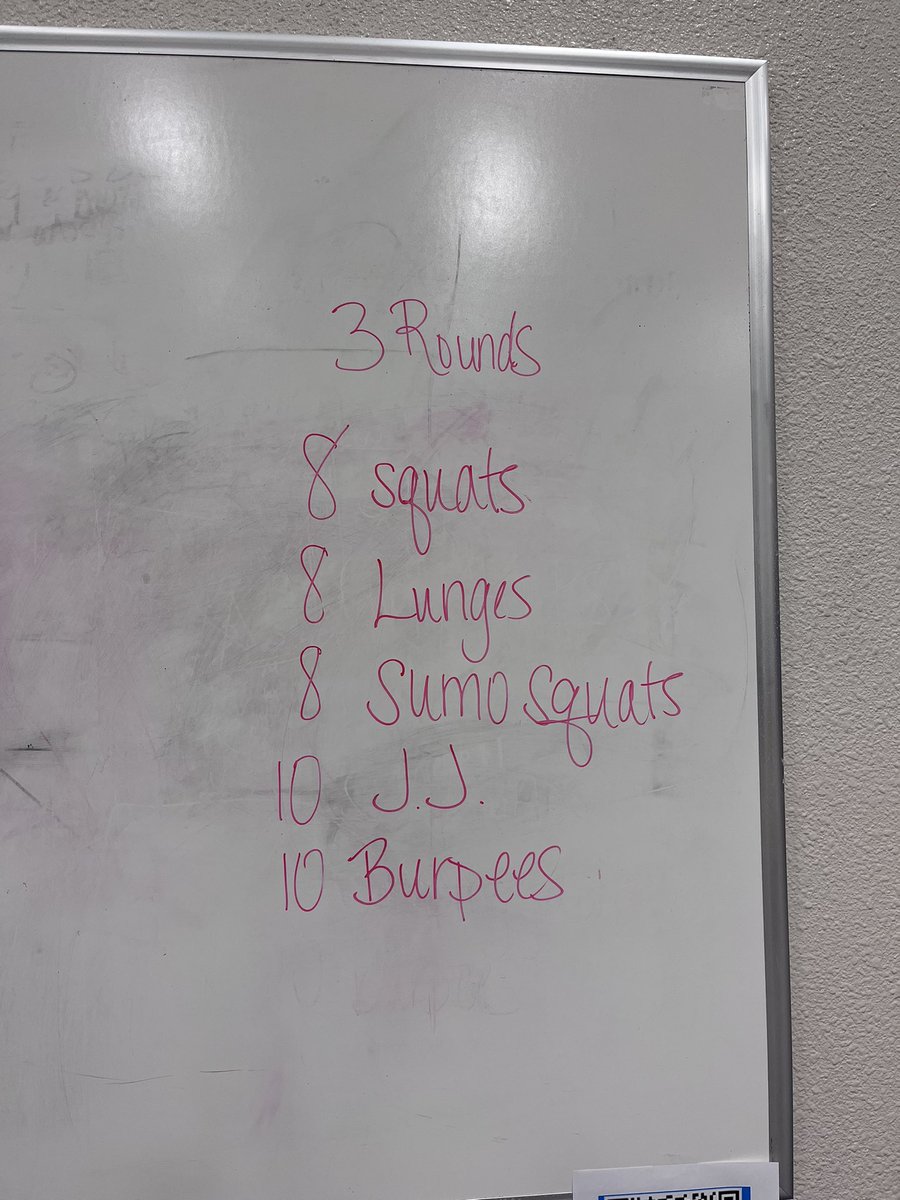 3 Rounds
8 squats
8 Lunges
8 Sumo squats
10 J.J.
10 Burpees